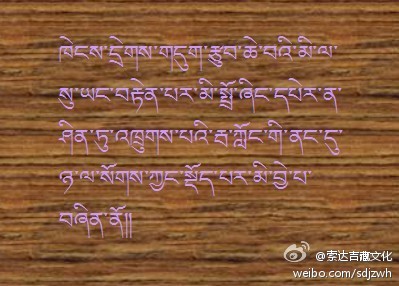 ཁེངས་དྲེགས་གདུག་རྩུབ་ཆེ་བའི་མི་ལ་
སུ་ཡང་བརྟེན་པར་མི་སྤྲོ་ཞིང་དཔེར་ན་
ཤིན་ཏུ་འཁྲུགས་པའི་རྦ་ཀློང་གི་ནང་དུ་
ཉ་ལ་སོགས་ཀྱང་སྡོད་པར་མི་བྱེ་པ་
བཞིན་ནོ།།
@索达吉藏文化
weibo.com/sdjzwh